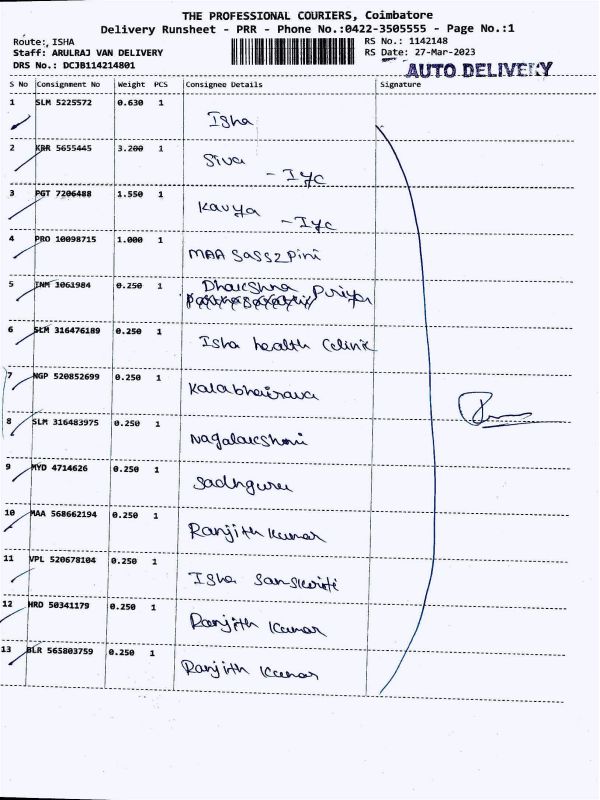 THE PROFESSIONAL COURIERS, Coimbatore
Delivery Runsheet - PRR - Phone No.:0422-3505555 - Page No.:1
Route:, ISHA RS No.: 1142148
Staff: ARULRAJ VAN DELIVERY RS Date: 27-Mar-2023
DRS No.: DCJB114214801
AUTO DELIVERY
S No Consignment No Weight PCS Consignee Details Signature
1 SLM 5225572 0.630 1
Isha
2 KBR 5655445 3.200 1
Siva
- Iyc
3 PGT 7206488 1.550 1
Kavya
- Iyc
4 PRO 10098715 1.000 1
MAA Sassz Pini
5 INM 1061984 0.250 1
Dhakshna Priya
6 SLM 316476189 0.250 1
Isha health Celinik
7 NGP 520852699 0.250 1
Kalabhairava
8 SLM 316483975 0.250 1
Nagalakshmi
9 MYD 4714626 0.250 1
Sadhguru
10 MAA 568662194 0.250 1
Ranjith Kumar
11 VPL 520678104 0.250 1
Isha Sanskriti
12 HRD 50341179 0.250 1
Ranjith Kumar
13 BLR 565803759 0.250 1
Ranjith Kumar